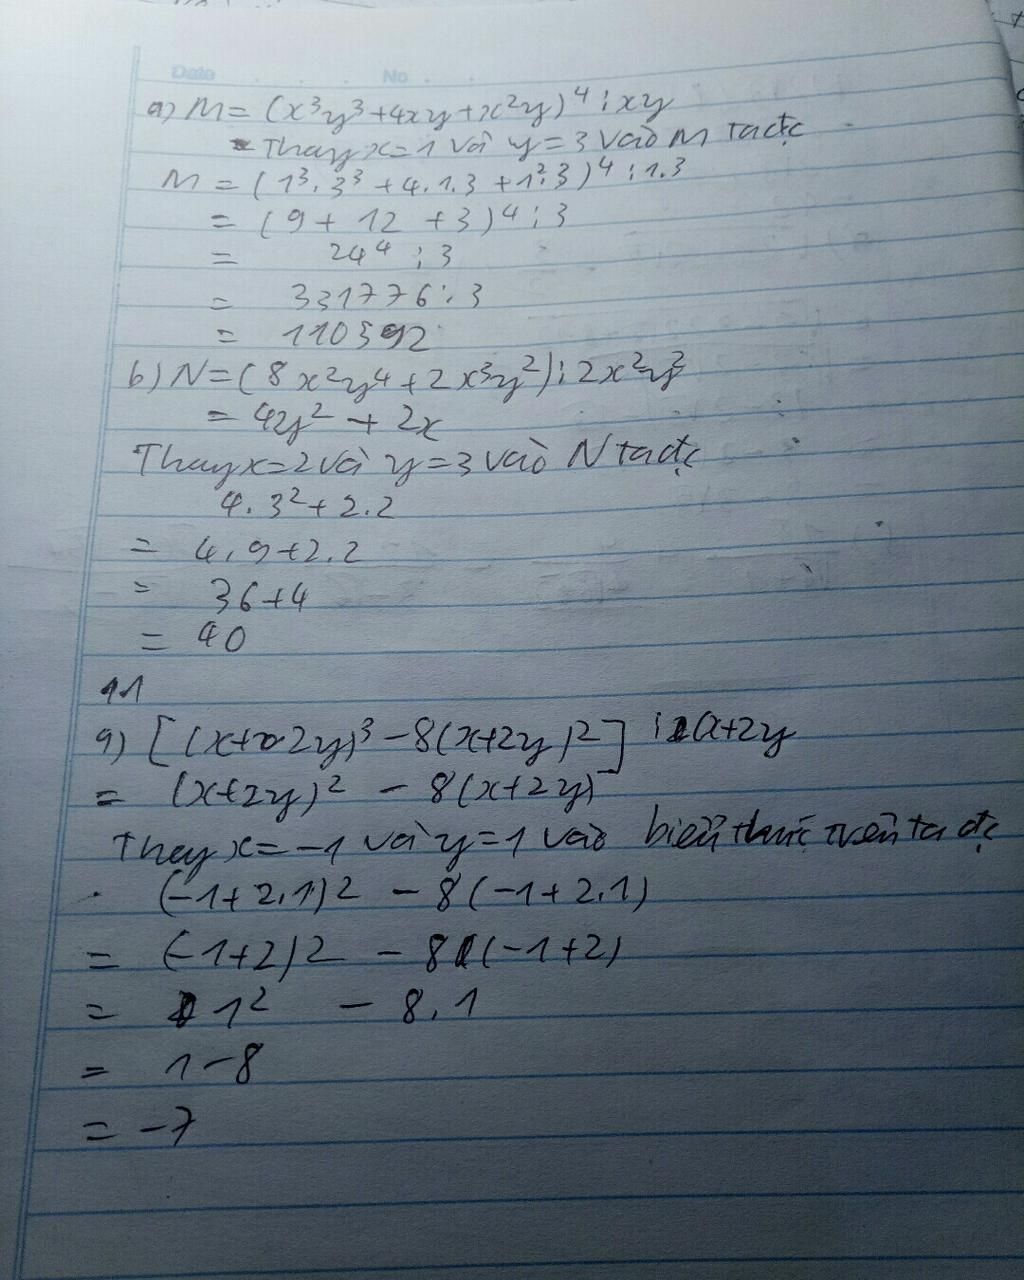 Date No
a) M = (x³y³ + 4xy + x²y)⁴ : xy
Thay x = 1 và y = 3 vào M ta đc
M = (1³. 3³ + 4.1.3 + 1².3)⁴ : 1.3
= (9 + 12 + 3)⁴ : 3
= 24⁴ : 3
= 331776 : 3
= 110592
b) N = (8x²y⁴ + 2x³y²) : 2x²y²
= 4y² + 2x
Thay x = 2 và y = 3 vào N ta đc
4.3² + 2.2
= 4.9 + 2.2
= 36 + 4
= 40
11
a) [(x + 2y)³ - 8(x + 2y)²] : x + 2y
= (x + 2y)² - 8(x + 2y)
Thay x = -1 và y = 1 vào biểu thức trên ta đc
(-1 + 2.1)² - 8(-1 + 2.1)
= (-1 + 2)² - 8(-1 + 2)
= 1² - 8.1
= 1 - 8
= -7